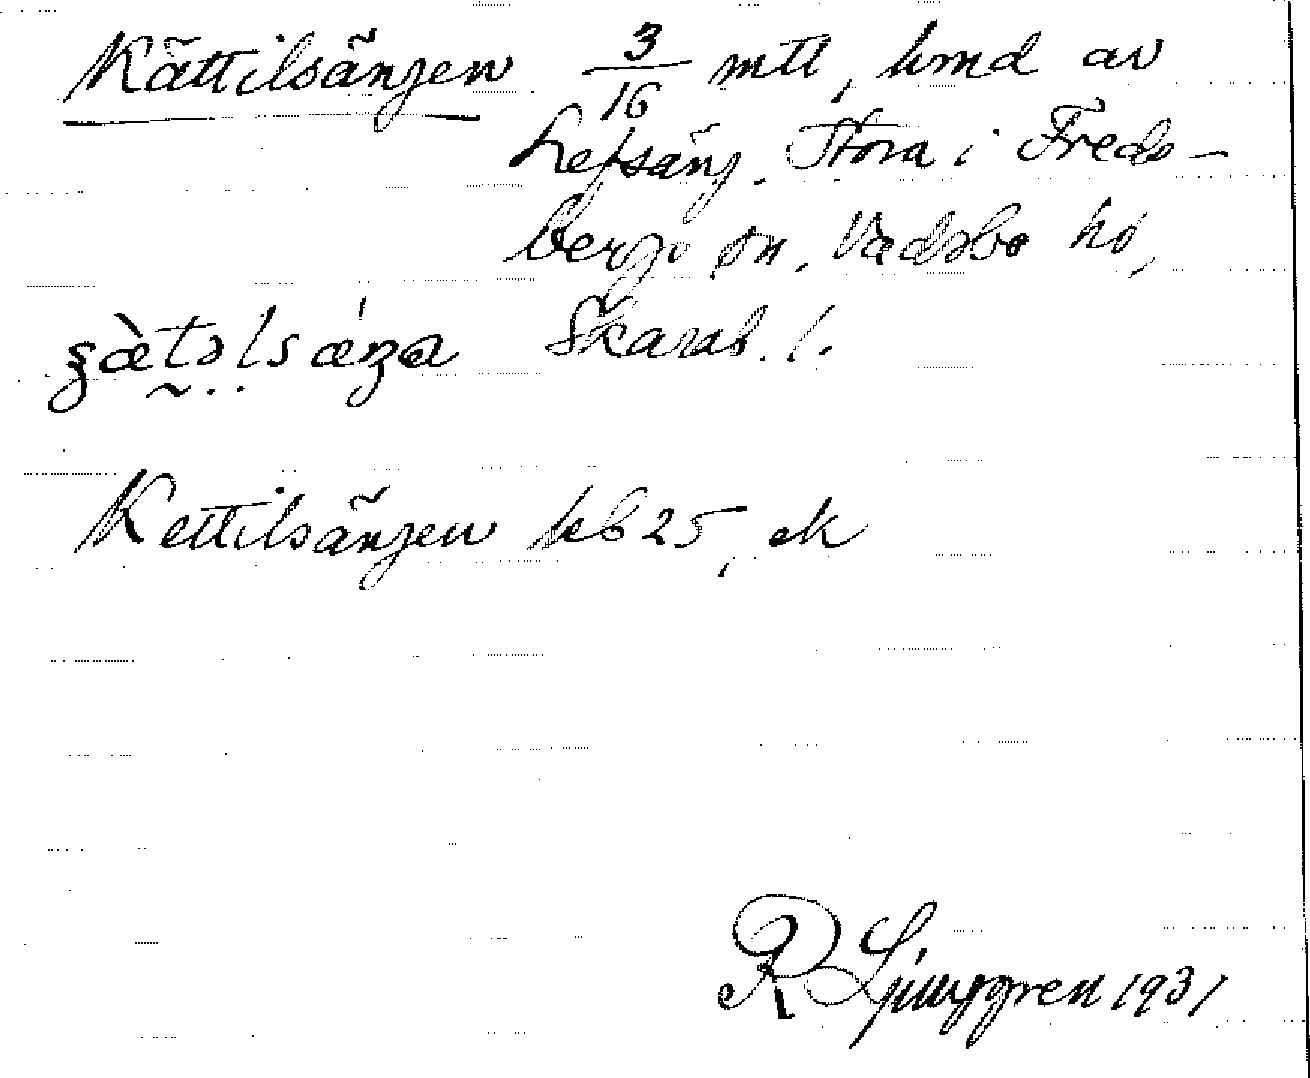 Kättilsängen 3/16 mtl, hmd av
Lepsäng. Stora i Freds-
bergs sn, Vadsbo hd,
Skarab. l.
Kettilsängen jeb 25, ek
R Ljunggren 1931